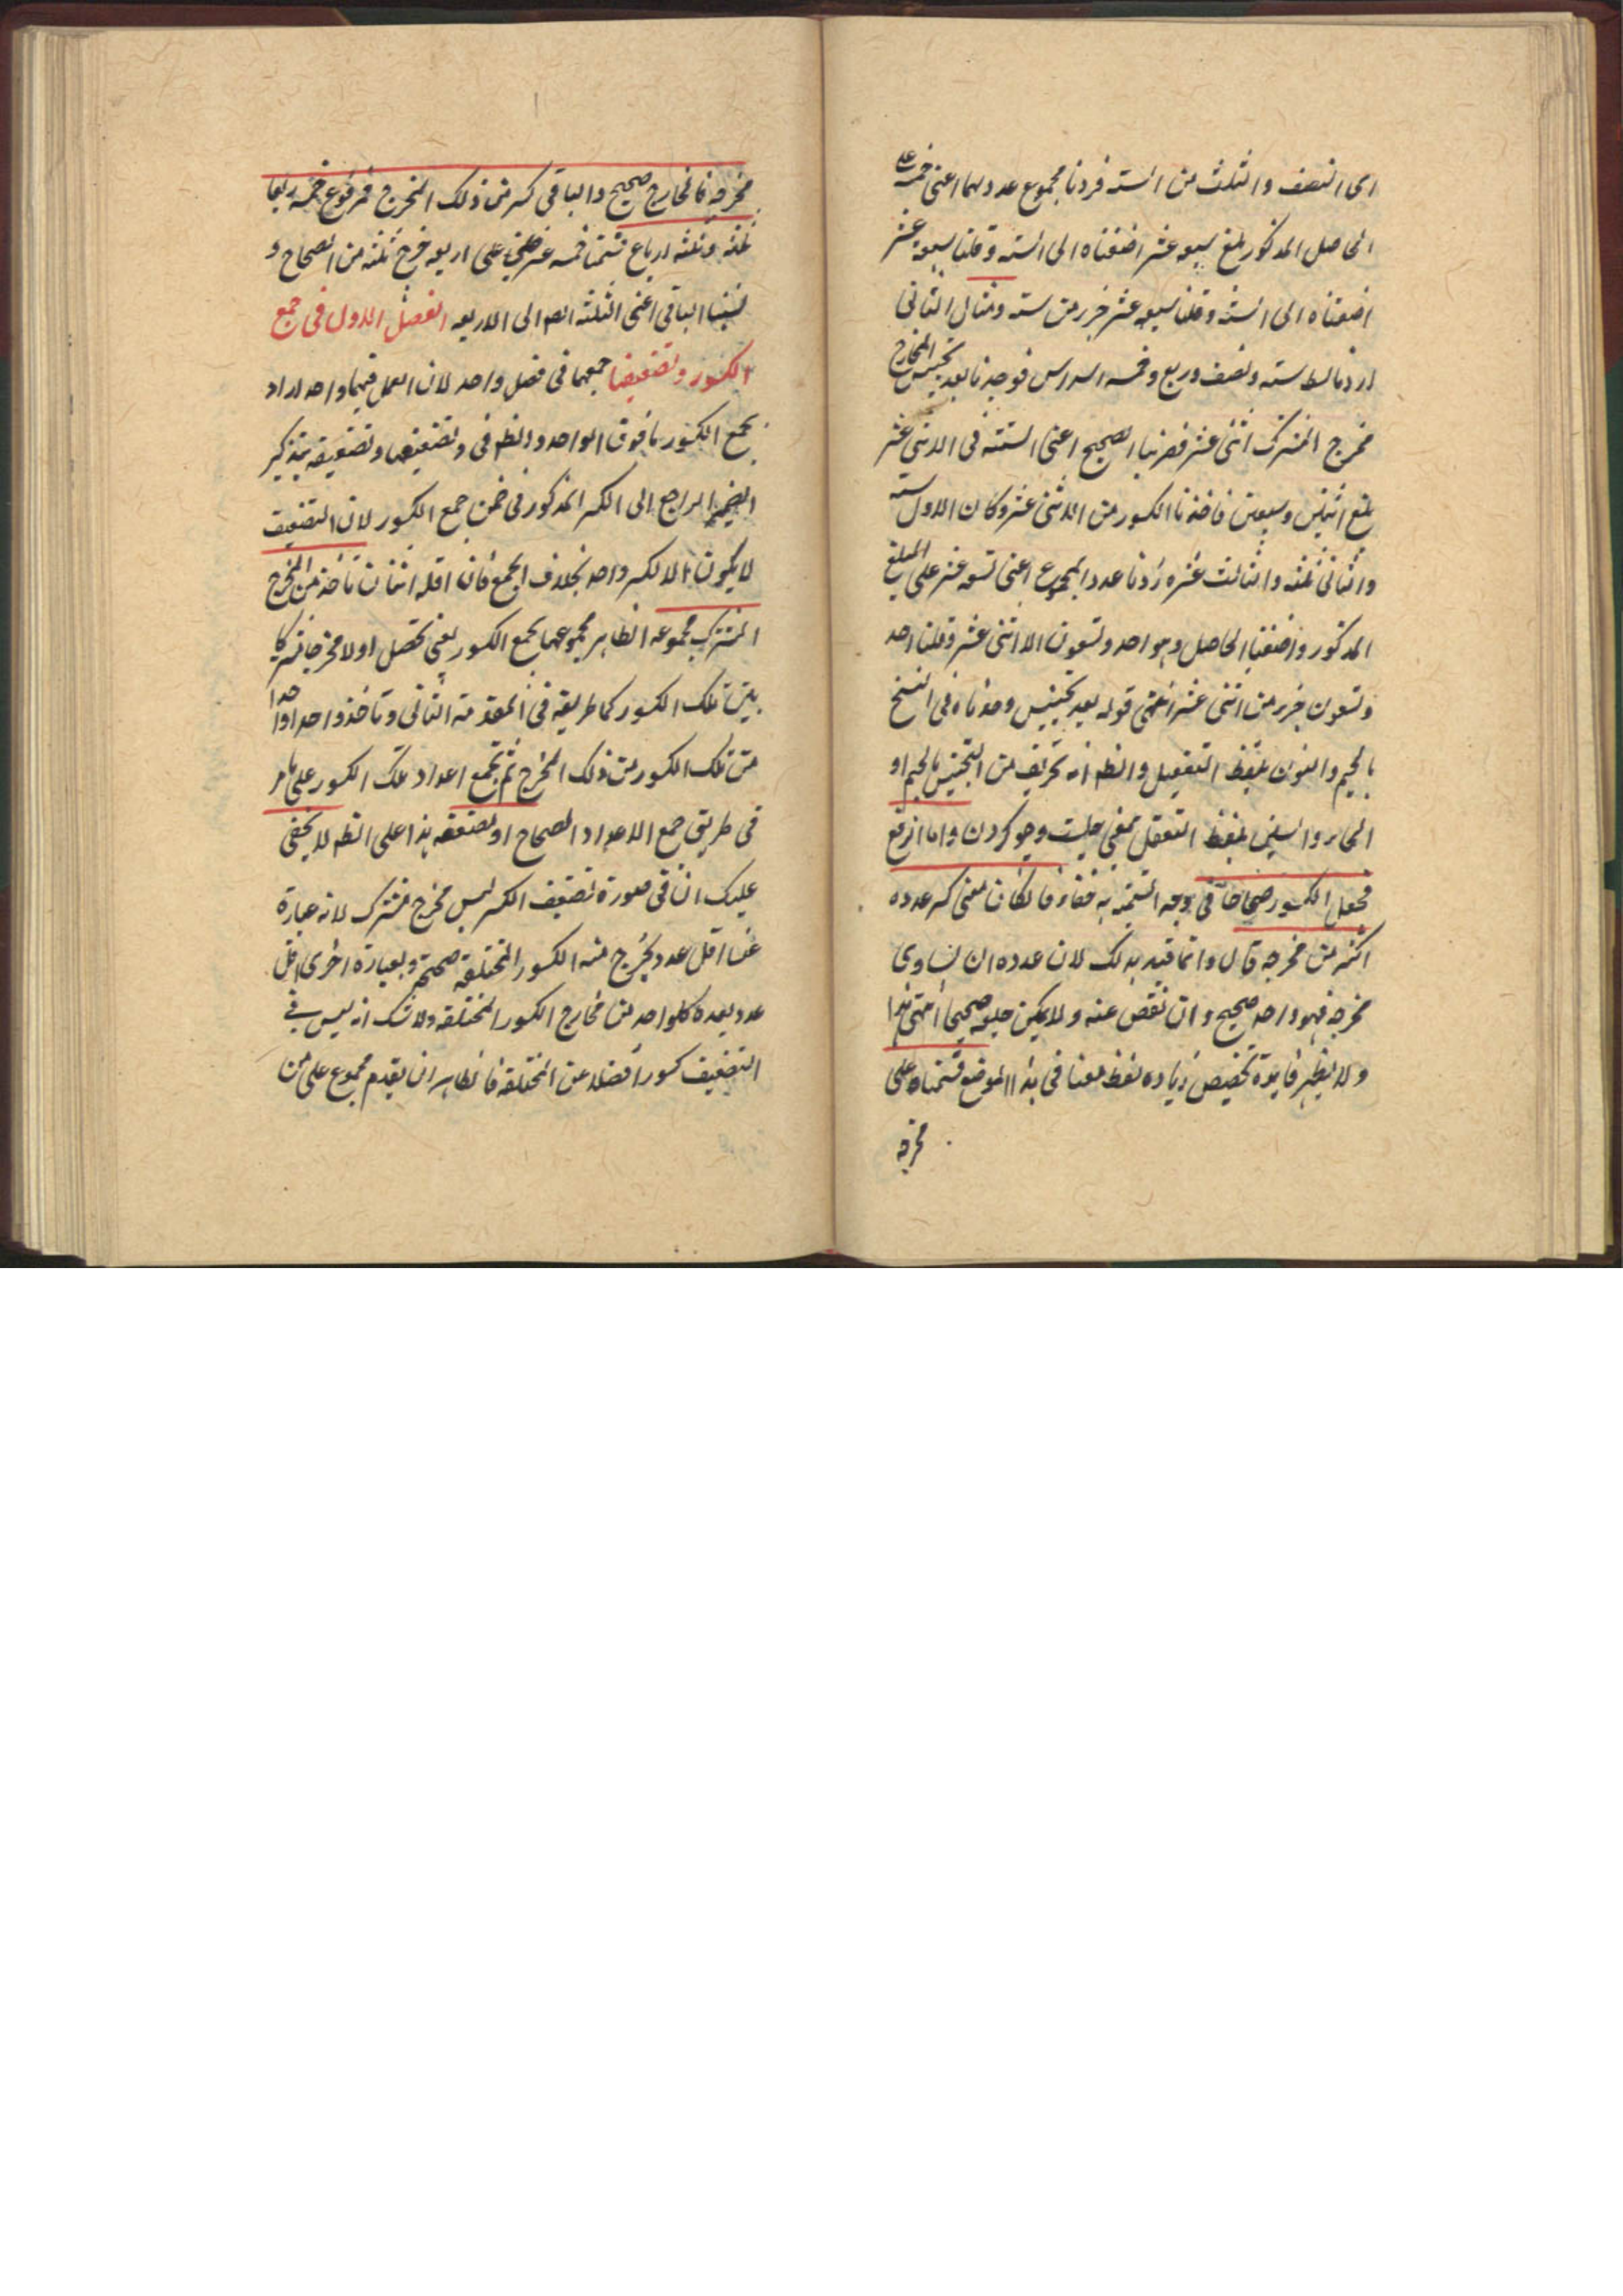 اى النصف والثلث من الستة فزدنا مجموع عددهما اعنى خمسة على
الحاصل المذكور بلغ سبعة عشر اضفناه الى الستة وقلنا سبعة عشر
اضفناه الى الستة وقلنا سبعة عشر جزء من ستة ومثال الثانى
اردنا بسط ستة ونصف وربع وخمسة اسداس فوجدنا بعد تجنيس المخارج
مخرج المشترك اثنى عشر فضربنا الصحيح اعنى الستة فى الاثنى عشر
بلغ اثنين وسبعين فاخذنا الكسور من الاثنى عشر وكان الاول ستة
والثانى ثلثة والثالث عشره زدنا عدد المجموع اعنى تسعة عشر على المبلغ
المذكور واضفنا الحاصل وهو احد وتسعون الا اثنى عشر وقلنا احد
وتسعون جزء من اثنى عشر انتهى قوله بعد تجنيس وجدناه فى النسخ
بالجيم والنون بلفظ التفعيل والظ انه تحريف من التجنيس بالجيم او
الحاء والسين بلفظ التفعل بمعنى جست وجو كردن واما الرفع
فجعل الكسور صحاحا فى وجه التسمية به خفاء فاذا كان معنى كسر عدده
اكثر من مخرجه قال وانما قيد بذلك لان عدده ان يساوى
مخرجه فهو واحد صحيح وان نقص عنه ولا يمكن جعله صحيحا انتهى هذا
ولا يظهر فايدة تخصيص زياده لفظ معنا فى هذا الموضع قسمناه على
مخرجه
مخرجه فالخارج صحيح والباقى كسر من ذلك المخرج فمرفوع خمسة عشر ربعا
ثلثة وثلثة ارباع قسمنا خمسة عشر على اربعة خرج ثلثة من الصحاح و
نسبنا الباقى اعنى الثلثة الى الاربعة الفصل الاول فى جمع
الكسور وتضعيفها جمعهما فى فصل واحد لان العمل فيهما واحد اراد
بجمع الكسور ما فوق الواحد والظ فى وتضعيفها وتضعيفه بتذكير
الضمير الراجع الى الكسر المذكور فى ضمن جمع الكسور لان التضعيف
لا يكون الا لكسر واحد بخلاف الجمع فان اقله اثنان تاخذ من المخرج
المشترك مجموعه الظاهر مجموعها بجمع الكسور يعنى تحصل اولا مخرجا مشتركا
بين تلك الكسور كما طريقه فى المقدمة الثانى وتاخذ واحدا واحدا
من تلك الكسور من ذلك المخرج ثم تجمع اعداد تلك الكسور على ما مر
فى طريق جمع الاعداد الصحاح او تضعفه هذا على الظ لا يخفى
عليك ان فى صورة تضعيف الكسر ليس مخرج مشترك لانه عبارة
عن اقل عدد يخرج منه الكسور المختلفة صحيحة وبعبارة اخرى اقل
عدد يعده كلواحد من مخارج الكسور المختلفة ولا شك انه ليس فى
التضعيف كسور فضلا عن المختلفة فالظاهر ان يقدم مجموع على من